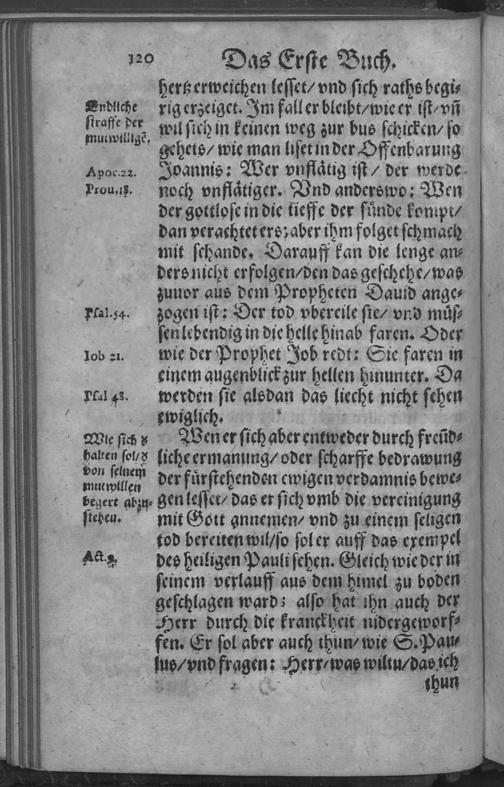 120 Das Erste Buch.
hertz erweichen lesset/ vnd sich raths begi-
rig erzeiget. Im fall er bleibt/ wie er ist/ vñ
wil sich in keinen weg zur bus schicken/ so
gehets/ wie man liset in der Offenbarung
Joannis: Wer vnflätig ist / der werde
noch vnflätiger. Vnd anderswo: Wen
der gottlose in die tieffe der sünde kompt/
dan verachtet ers; aber ihm folget schmach
mit schande. Darauff kan die lenge an-
ders nicht erfolgen/ den das geschehe/ was
zuuor aus dem Propheten Dauid ange-
zogen ist: Der tod vbereile sie/ vnd müs-
sen lebendig in die helle hinab faren. Oder
wie der Prophet Job redt: Sie faren in
einem augenblick zur hellen hinunter. Da
werden sie alsdan das liecht nicht sehen
ewiglich.
Wen er sich aber entweder durch freünd-
liche ermanung/ oder scharffe bedrawung
der fürstehenden ewigen verdamnis bewe-
gen lesset/ das er sich vmb die vereinigung
mit Gott annemen/ vnd zu einem seligen
tod bereiten wil/ so sol er auff das exempel
des heiligen Pauli sehen. Gleich wie der in
seinem verlauff aus dem himel zu boden
geschlagen ward; also hat ihn auch der
Herr durch die kranckheit nidergeworf-
fen. Er sol aber auch thun/ wie S. Pau-
lus/ vnd fragen: Herr/ was wiltu/ das ich
thun
Endliche
straffe der
mutwilligẽ.
Apoc. 22.
Prou. 18.
Psal. 54.
Iob 21.
Psal 48.
Wie sich d
halten sol/ d
von seinem
mutwillen
begert abzu-
stehen.
Act. 9.